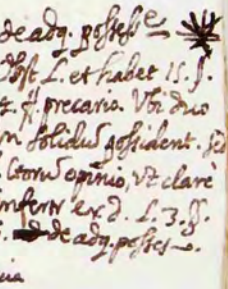 de adq. possess.e
obst L. et habet 15. §.
ff. precario. Vbi duo
solidũ possident. sed
opinio, vt clarè
infertr ex d. L. 3. §.
de adq. posses